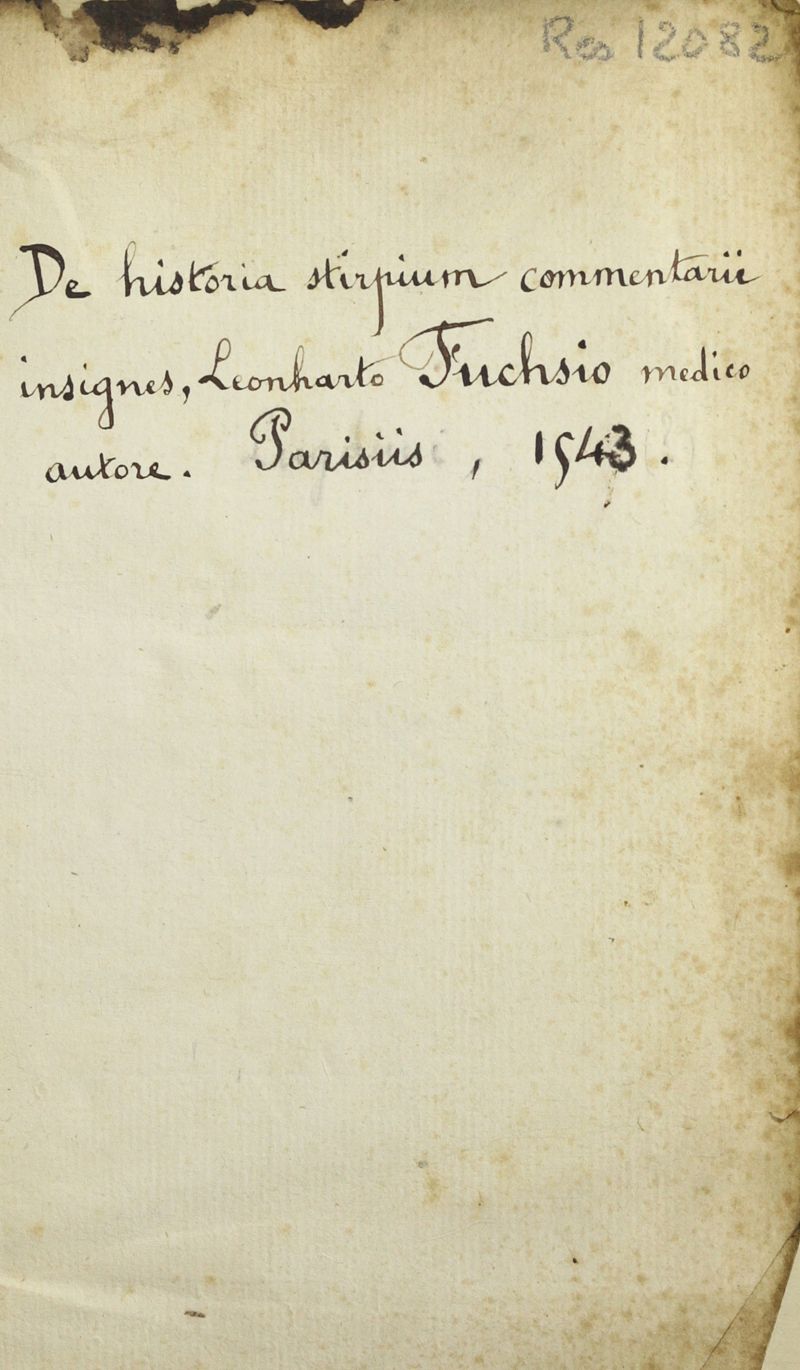 Res 12082
De historia stirpium commentarii
insignes, Leonharto Fuchsio medico
autore. Parisiis, 1543.